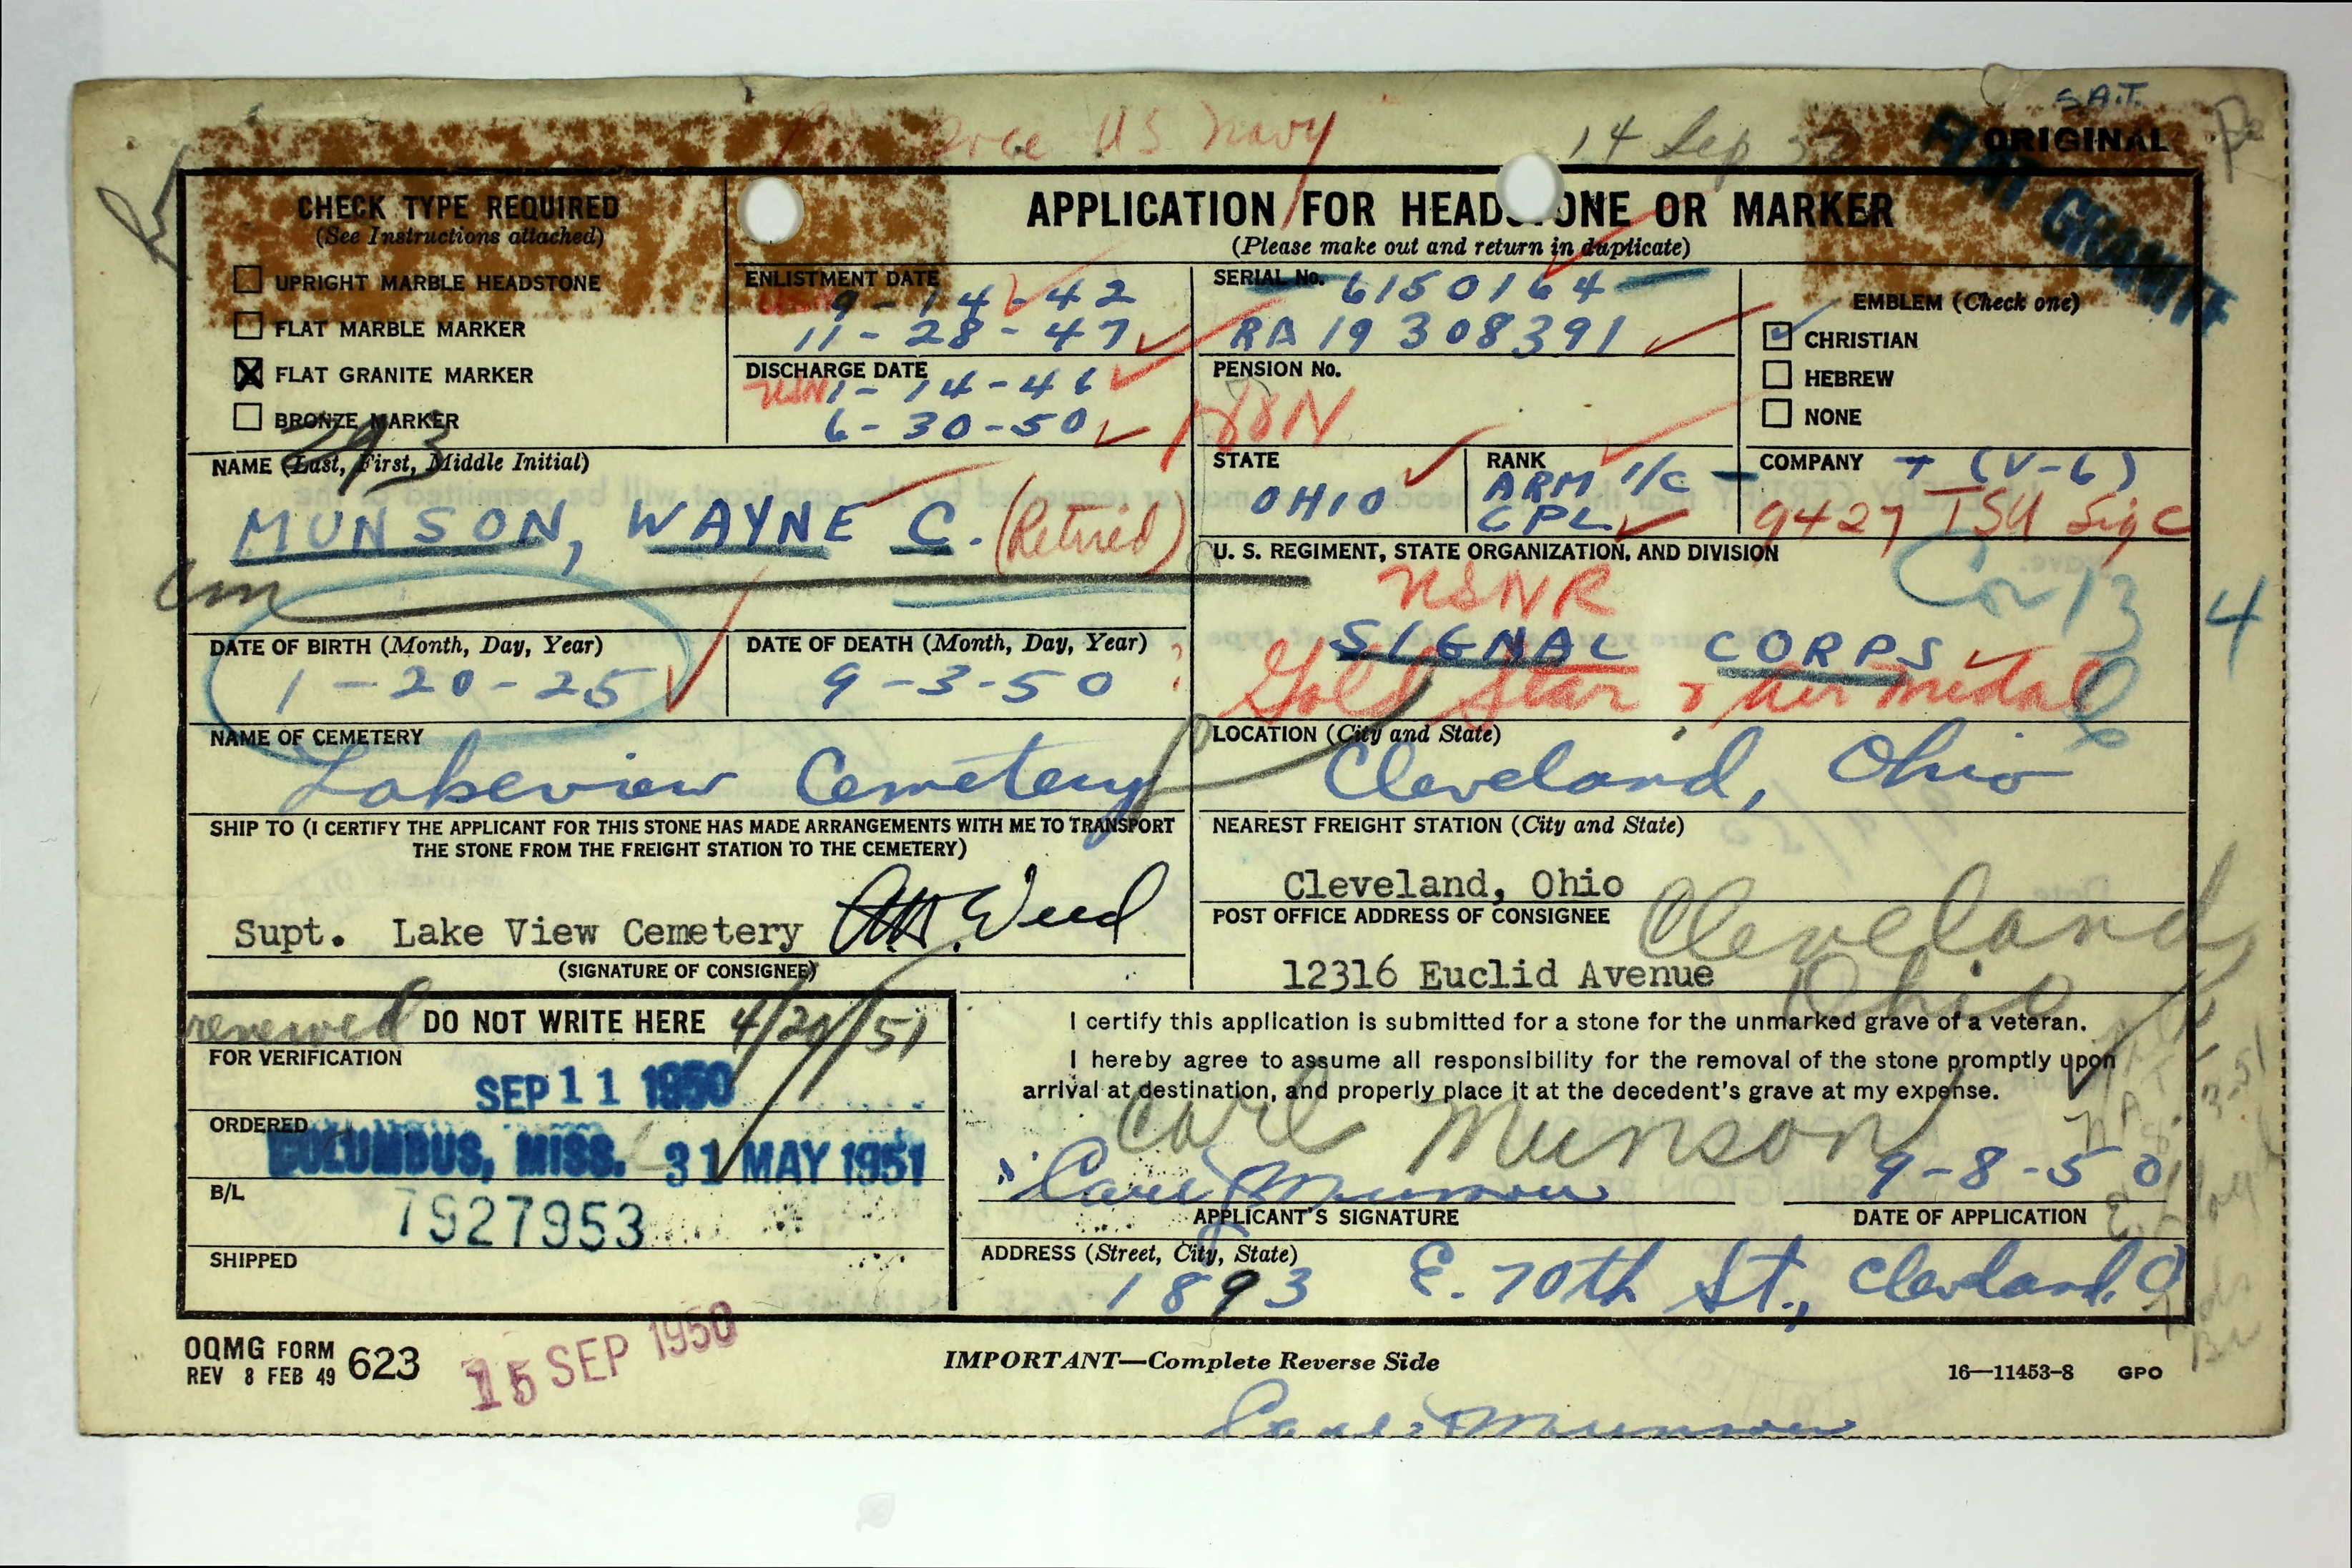 S.A.T.
US Navy
14 Sep
ORIGINAL
FLAT GRANITE
CHECK TYPE REQUIRED
(See Instructions attached)
UPRIGHT MARBLE HEADSTONE
FLAT MARBLE MARKER
FLAT GRANITE MARKER
BRONZE MARKER
APPLICATION FOR HEADSTONE OR MARKER
(Please make out and return in duplicate)
ENLISTMENT DATE
9-14-42
11-28-47
DISCHARGE DATE
USN 1-14-46
6-30-50
SERIAL No.
6150164
RA 19 308391
PENSION No.
EMBLEM (Check one)
CHRISTIAN
HEBREW
NONE
293
NAME (Last, First, Middle Initial)
MUNSON, WAYNE C. (Retired)
STATE
OHIO
RANK
ARM 1/C
CPL
COMPANY
(V-6)
9427 TSU Sig C
U. S. REGIMENT, STATE ORGANIZATION, AND DIVISION
USNR
SIGNAL CORPS
Gold Star & Air medal
4
DATE OF BIRTH (Month, Day, Year)
1-20-25
DATE OF DEATH (Month, Day, Year)
9-3-50
NAME OF CEMETERY
Lakeview Cemetery
LOCATION (City and State)
Cleveland, Ohio
SHIP TO (I CERTIFY THE APPLICANT FOR THIS STONE HAS MADE ARRANGEMENTS WITH ME TO TRANSPORT
THE STONE FROM THE FREIGHT STATION TO THE CEMETERY)
Supt. Lake View Cemetery
(SIGNATURE OF CONSIGNEE)
NEAREST FREIGHT STATION (City and State)
Cleveland, Ohio
POST OFFICE ADDRESS OF CONSIGNEE
12316 Euclid Avenue
Cleveland
Ohio
renewed
DO NOT WRITE HERE
FOR VERIFICATION
SEP 11 1950
ORDERED
COLUMBUS, MISS. 31 MAY 1951
B/L
7927953
SHIPPED
I certify this application is submitted for a stone for the unmarked grave of a veteran.
I hereby agree to assume all responsibility for the removal of the stone promptly upon
arrival at destination, and properly place it at the decedent's grave at my expense.
Carl Munson
Carl Munson
9-8-50
APPLICANT'S SIGNATURE
DATE OF APPLICATION
ADDRESS (Street, City, State)
1893 E. 70th St., Cleveland, O
OQMG FORM 623
REV 8 FEB 49
15 SEP 1950
IMPORTANT—Complete Reverse Side
16—11453-8 GPO
Carl Munson